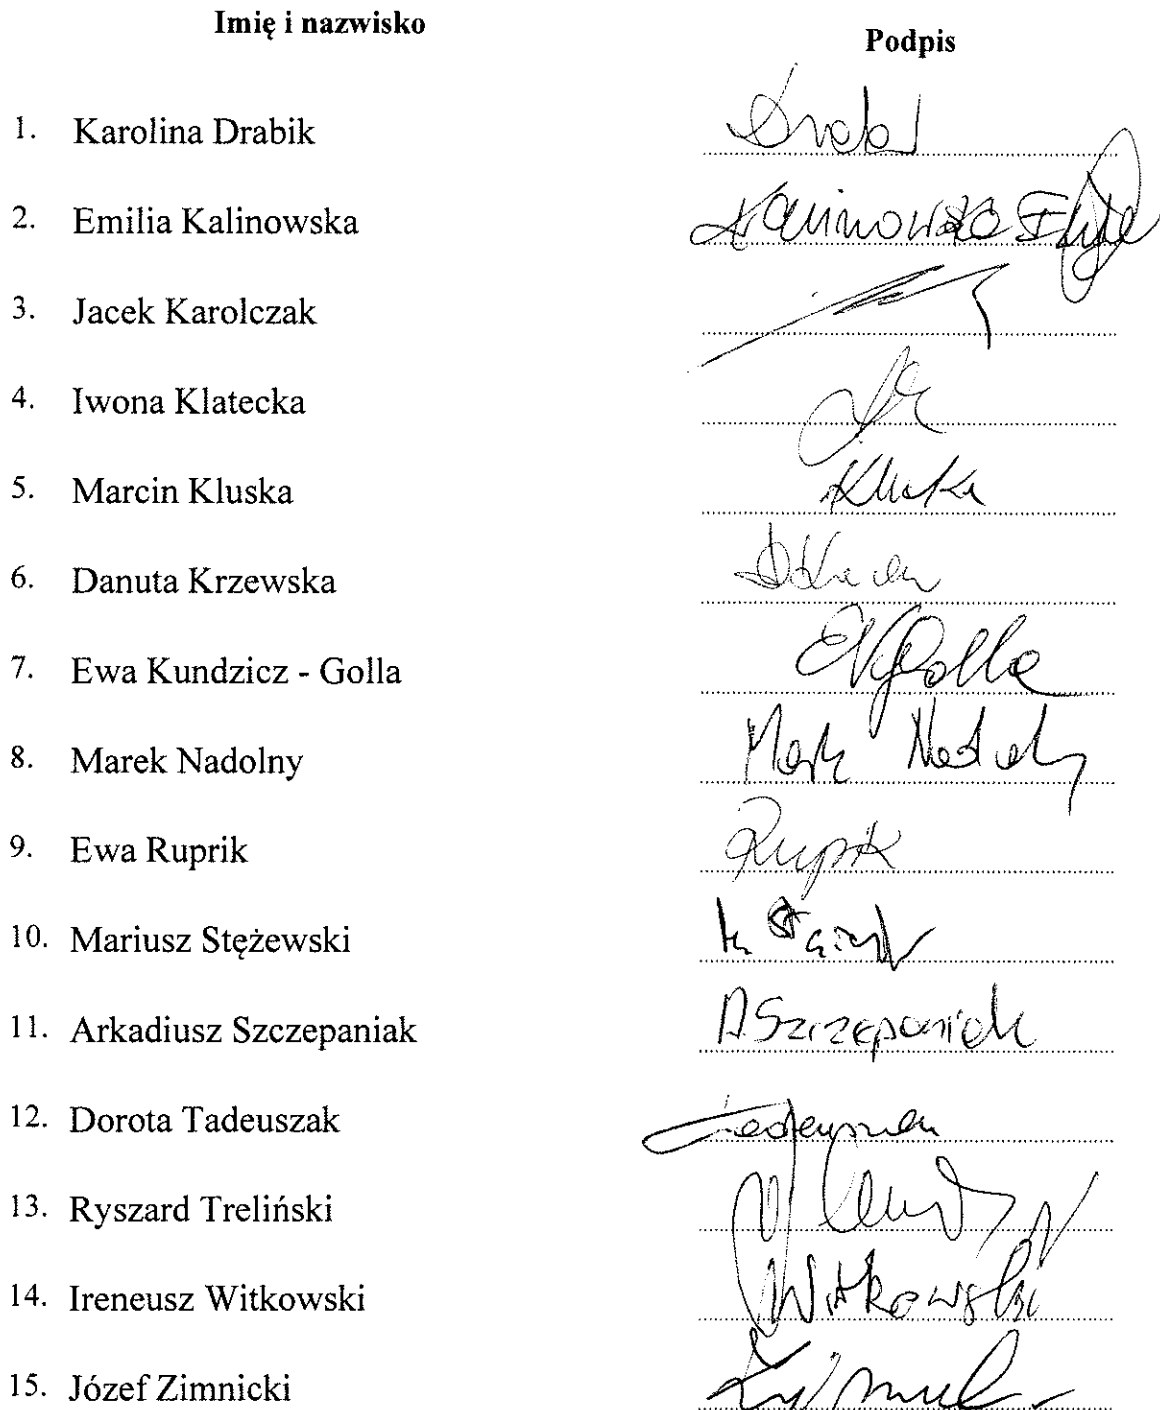 Imię i nazwisko
Podpis
1. Karolina Drabik
2. Emilia Kalinowska Kalinowska
3. Jacek Karolczak
4. Iwona Klatecka
5. Marcin Kluska Kluska
6. Danuta Krzewska
7. Ewa Kundzicz - Golla EKGolla
8. Marek Nadolny Marek Nadolny
9. Ewa Ruprik
10. Mariusz Stężewski
11. Arkadiusz Szczepaniak A Szczepaniak
12. Dorota Tadeuszak
13. Ryszard Treliński
14. Ireneusz Witkowski Witkowski
15. Józef Zimnicki